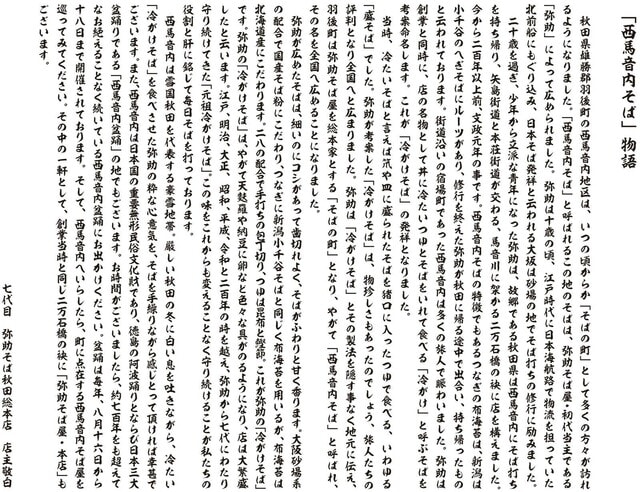 「西馬音内そば」物語
秋田県雄勝郡羽後町の西馬音内地区は、いつの頃からか「そばの町」として多くの方々が訪れ
るようになりました。「西馬音内そば」と呼ばれるこの地のそばは、弥助そば屋・初代当主である
「弥助」によって広められました。弥助は十歳の頃、江戸時代に日本海航路で物流を担っていた
北前船にもぐり込み、日本そば発祥と云われる大坂は砂場の地でそば打ちの修行に励みました。
二十歳を過ぎ、少年から立派な青年になった弥助は、故郷である秋田県は西馬音内にそば打ち
を持ち帰り、矢島街道と本荘街道が交わる、馬音川に架かる二万石橋の袂に店を構えました。
今から二百年以上前、文政元年の事です。西馬音内そばの特徴でもあるつなぎの布海苔は、新潟は
小千谷のへぎそばにルーツがあり、修行を終えた弥助が秋田に帰る途中で出合い、持ち帰ったもの
と云われております。街道沿いの宿場町であった西馬音内は多くの旅人で賑わいました。弥助は
創業と同時に、店の名物として丼に冷たいつゆとそばをいれて食べる「冷がけ」と呼ぶそばを
考案命名します。これが「冷がけそば」の発祥となりました。
当時、冷たいそばと言えば笊や皿に盛られたそばを猪口に入ったつゆで食べる、いわゆる
「盛そば」でした。弥助が考案した「冷がけそば」は、物珍しさもあったのでしょう、旅人たちの
評判となり全国へと広まりました。弥助は「冷がけそば」とその製法を隠す事なく地元に伝え、
羽後町は弥助そば屋を総本家とする「そばの町」となり、やがて「西馬音内そば」と呼ばれ、
その名を全国へ広めることになりました。
弥助が広めたそばは、細いのにコシがあって歯切れよく、そばがふわりと甘く香ります。大阪砂場系
の配合で国産そば粉にこだわり、つなぎに新潟小千谷そばと同じく布海苔を用いるが、布海苔は
北海道産にこだわります。二八の配合で手打ちの包丁切り、つゆは昆布と鰹節。これが弥助の「冷がけそば」
です。弥助の「冷がけそば」は、やがて天麩羅や納豆に卵などと色々な具がのるようになり、店は大繁盛
したと云います。江戸、明治、大正、昭和、平成、令和と二百年の時を越え、弥助から七代にわたり
守り続けてきた「元祖冷がけそば」。この味をこれからも変えることなく守り続けることが私たちの
役割と肝に銘じて毎日そばを打っております。
西馬音内は雪国秋田を代表する豪雪地帯。厳しい秋田の冬に白い息を吐きながら、冷たい
「冷がけそば」を食べさせた弥助の粋な心意気を、そばを手繰りながら感じとって頂ければ幸甚で
ございます。また、西馬音内は日本国の重要無形民俗文化財であり、徳島の阿波踊りとならび日本三大
盆踊りである「西馬音内盆踊」の地でもございます。お時間がございましたら、約七百年をも超えて
なお絶えることなく続いている西馬音内盆踊にお出かけください。盆踊は毎年、八月十六日から
十八日まで開催されております。そして、西馬音内へいらしたら、町に点在する西馬音内そば屋を
巡ってみてください。その中の一軒として、創業当時と同じ二万石橋の袂に「弥助そば屋・本店」も
ございます。
七代目 弥助そば秋田総本店 店主敬白